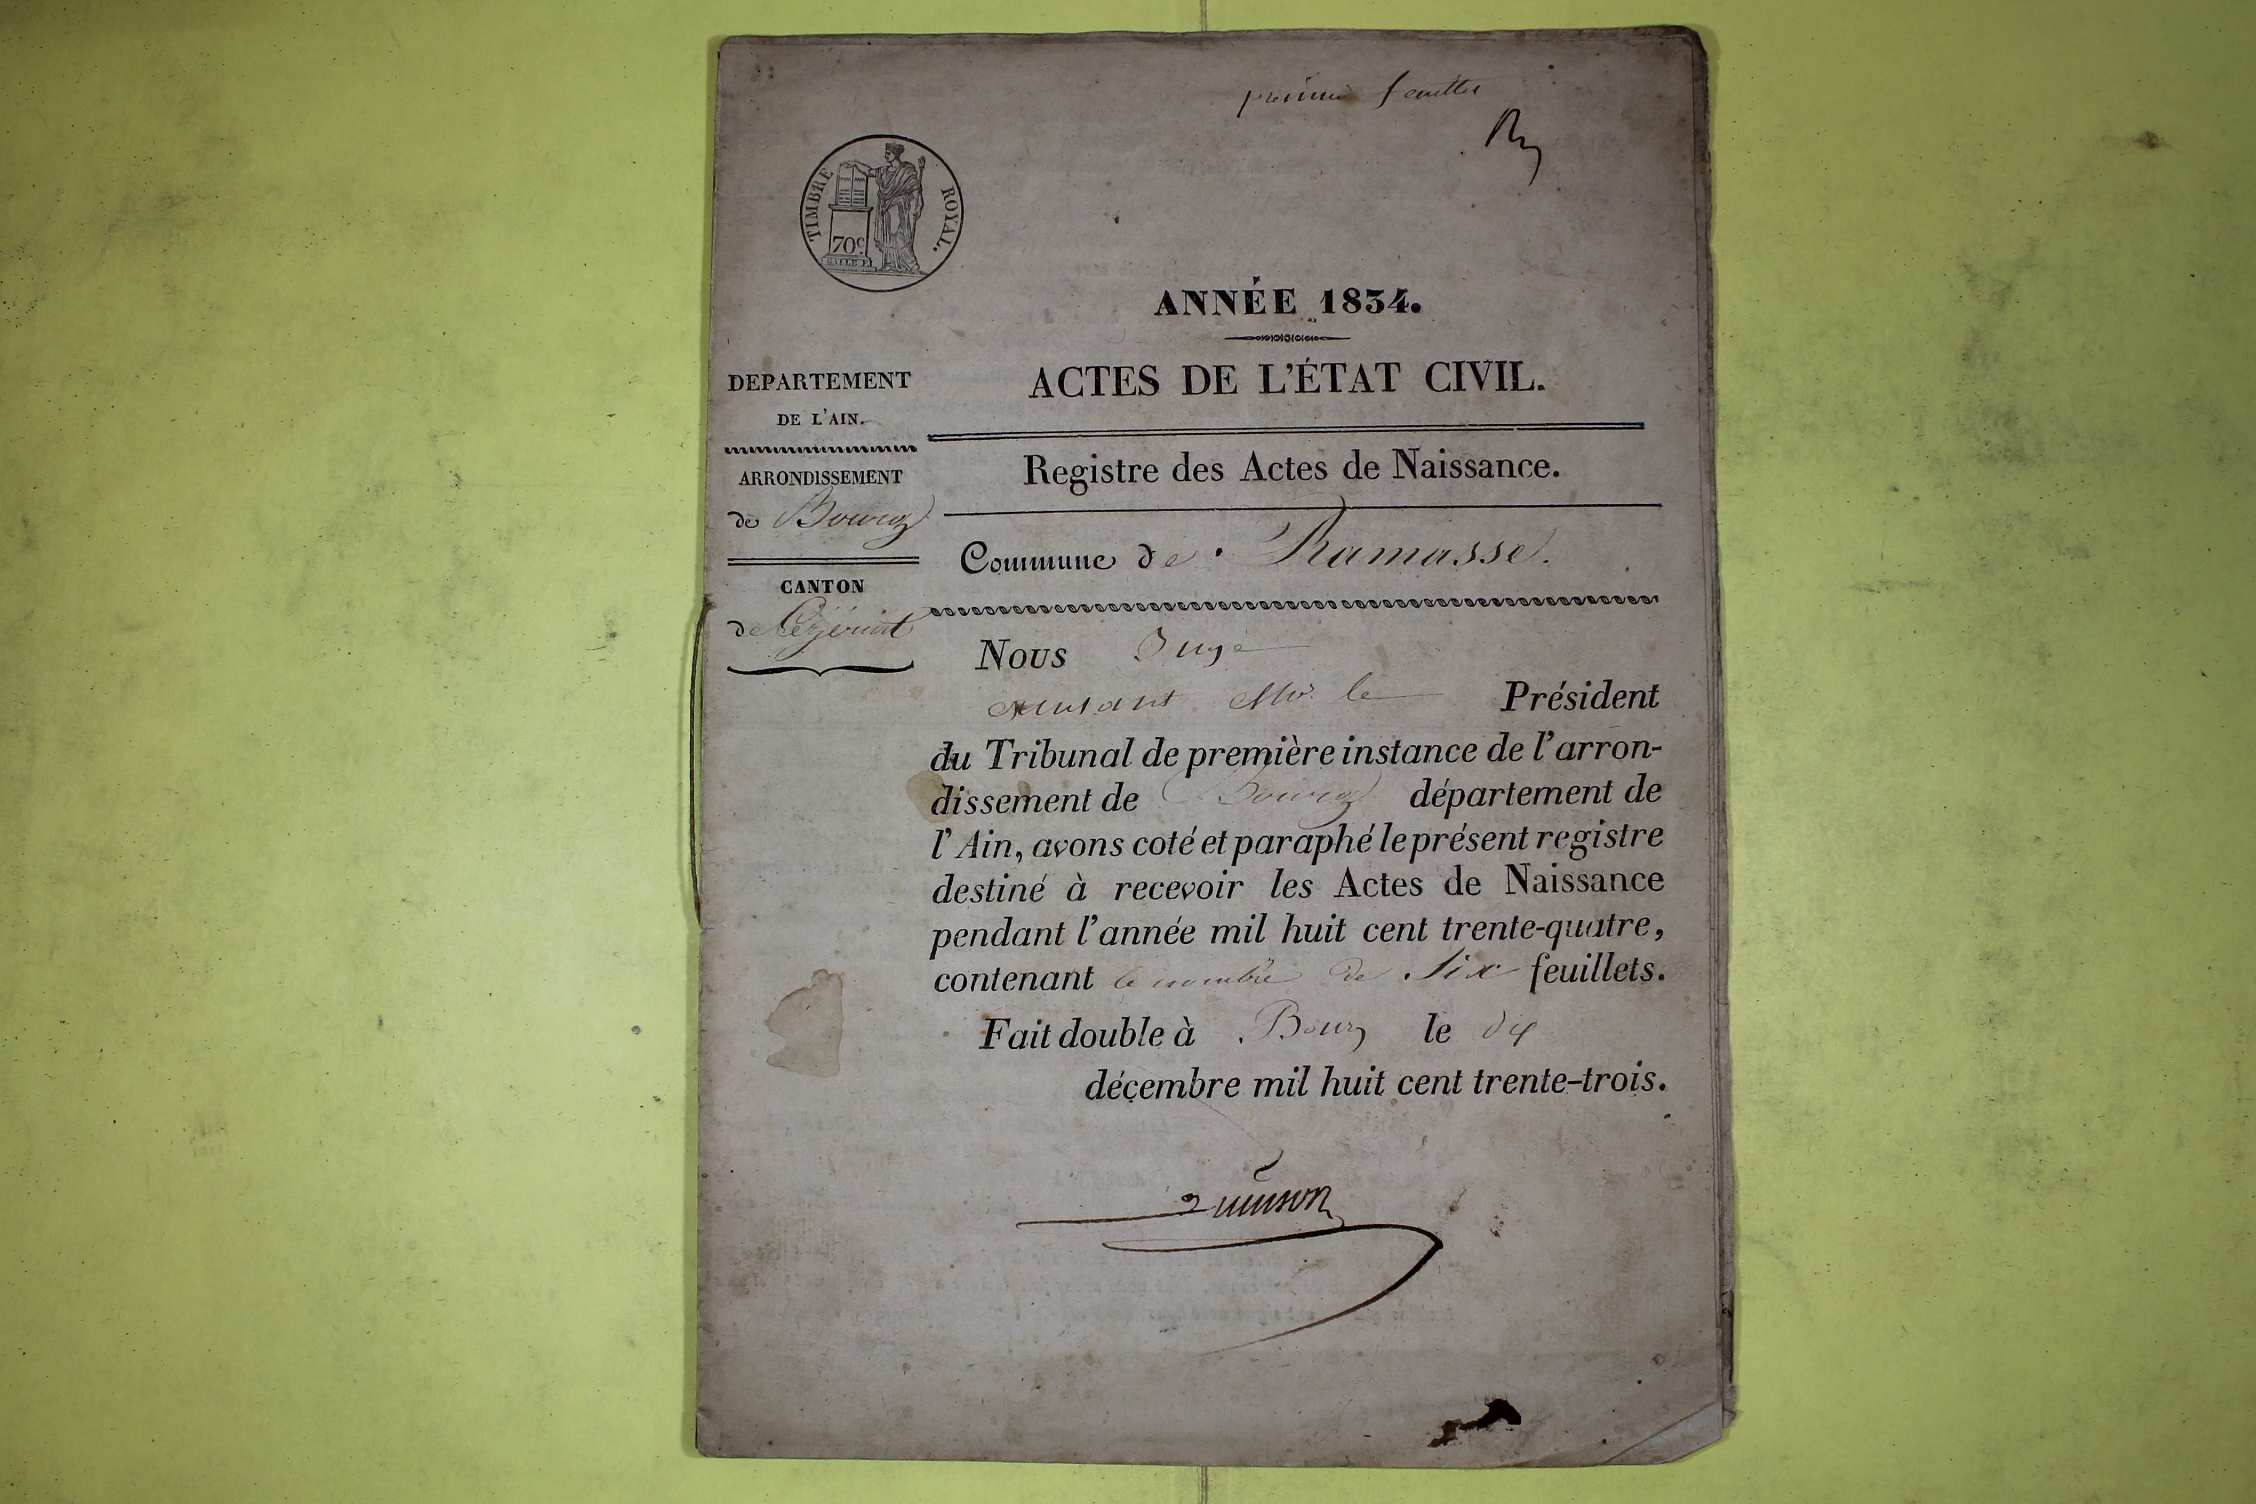 premier feuillet
TIMBRE ROYAL.
70c.
ANNÉE 1834.
ACTES DE L'ÉTAT CIVIL.
DEPARTEMENT
DE L'AIN.
ARRONDISSEMENT
de Bourg
CANTON
de Ceyzériat
Registre des Actes de Naissance.
Commune de Ramasse.
Nous Juge
Mr. le Président
du Tribunal de première instance de l'arron-
dissement de Bourg département de
l'Ain, avons coté et paraphé le présent registre
destiné à recevoir les Actes de Naissance
pendant l'année mil huit cent trente-quatre,
contenant le nombre de Six feuillets.
Fait double à Bourg le dix
décembre mil huit cent trente-trois.